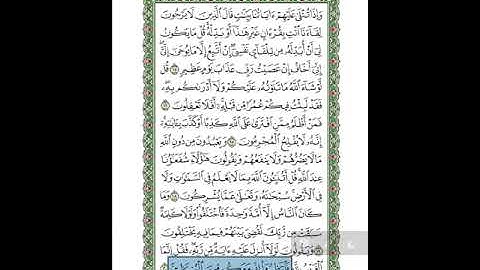 وَإِذَا تُتْلَىٰ عَلَيْهِمْ ءَايَاتُنَا بَيِّنَٰتٍ قَالَ ٱلَّذِينَ لَا يَرْجُونَ
لِقَآءَنَا ٱئْتِ بِقُرْءَانٍ غَيْرِ هَٰذَآ أَوْ بَدِّلْهُ قُلْ مَا يَكُونُ
لِىٓ أَنْ أُبَدِّلَهُۥ مِن تِلْقَآئِ نَفْسِىٓ إِنْ أَتَّبِعُ إِلَّا مَا يُوحَىٰٓ إِلَىَّ
إِنِّىٓ أَخَافُ إِنْ عَصَيْتُ رَبِّى عَذَابَ يَوْمٍ عَظِيمٍ ١٥ قُل
لَّوْ شَآءَ ٱللَّهُ مَا تَلَوْتُهُۥ عَلَيْكُمْ وَلَآ أَدْرَىٰكُم بِهِۦ
فَقَدْ لَبِثْتُ فِيكُمْ عُمُرًا مِّن قَبْلِهِۦٓ أَفَلَا تَعْقِلُونَ ١٦
فَمَنْ أَظْلَمُ مِمَّنِ ٱفْتَرَىٰ عَلَى ٱللَّهِ كَذِبًا أَوْ كَذَّبَ بِـَٔايَٰتِهِۦٓ
إِنَّهُۥ لَا يُفْلِحُ ٱلْمُجْرِمُونَ ١٧ وَيَعْبُدُونَ مِن دُونِ ٱللَّهِ
مَا لَا يَضُرُّهُمْ وَلَا يَنفَعُهُمْ وَيَقُولُونَ هَٰٓؤُلَآءِ شُفَعَٰٓؤُنَا
عِندَ ٱللَّهِ قُلْ أَتُنَبِّـُٔونَ ٱللَّهَ بِمَا لَا يَعْلَمُ فِى ٱلسَّمَٰوَٰتِ وَلَا
فِى ٱلْأَرْضِ سُبْحَٰنَهُۥ وَتَعَٰلَىٰ عَمَّا يُشْرِكُونَ ١٨ وَمَا
كَانَ ٱلنَّاسُ إِلَّآ أُمَّةً وَٰحِدَةً فَٱخْتَلَفُوا۟ وَلَوْلَا كَلِمَةٌ
سَبَقَتْ مِن رَّبِّكَ لَقُضِىَ بَيْنَهُمْ فِيمَا فِيهِ يَخْتَلِفُونَ
١٩ وَيَقُولُونَ لَوْلَآ أُنزِلَ عَلَيْهِ ءَايَةٌ مِّن رَّبِّهِۦ فَقُلْ إِنَّمَا